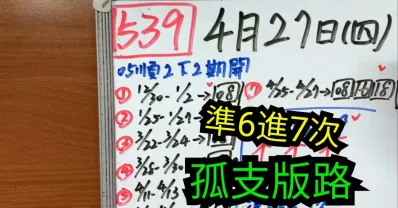 539 4月27日(四)
05順2下2期開
① 12/30-1/2→08
② 1/25-1/27→
③ 3/22-3/24→
④ 3/28-3/30
⑤ 4/11-4/13
4/25-4/27→08
準6進7次
孤支版路